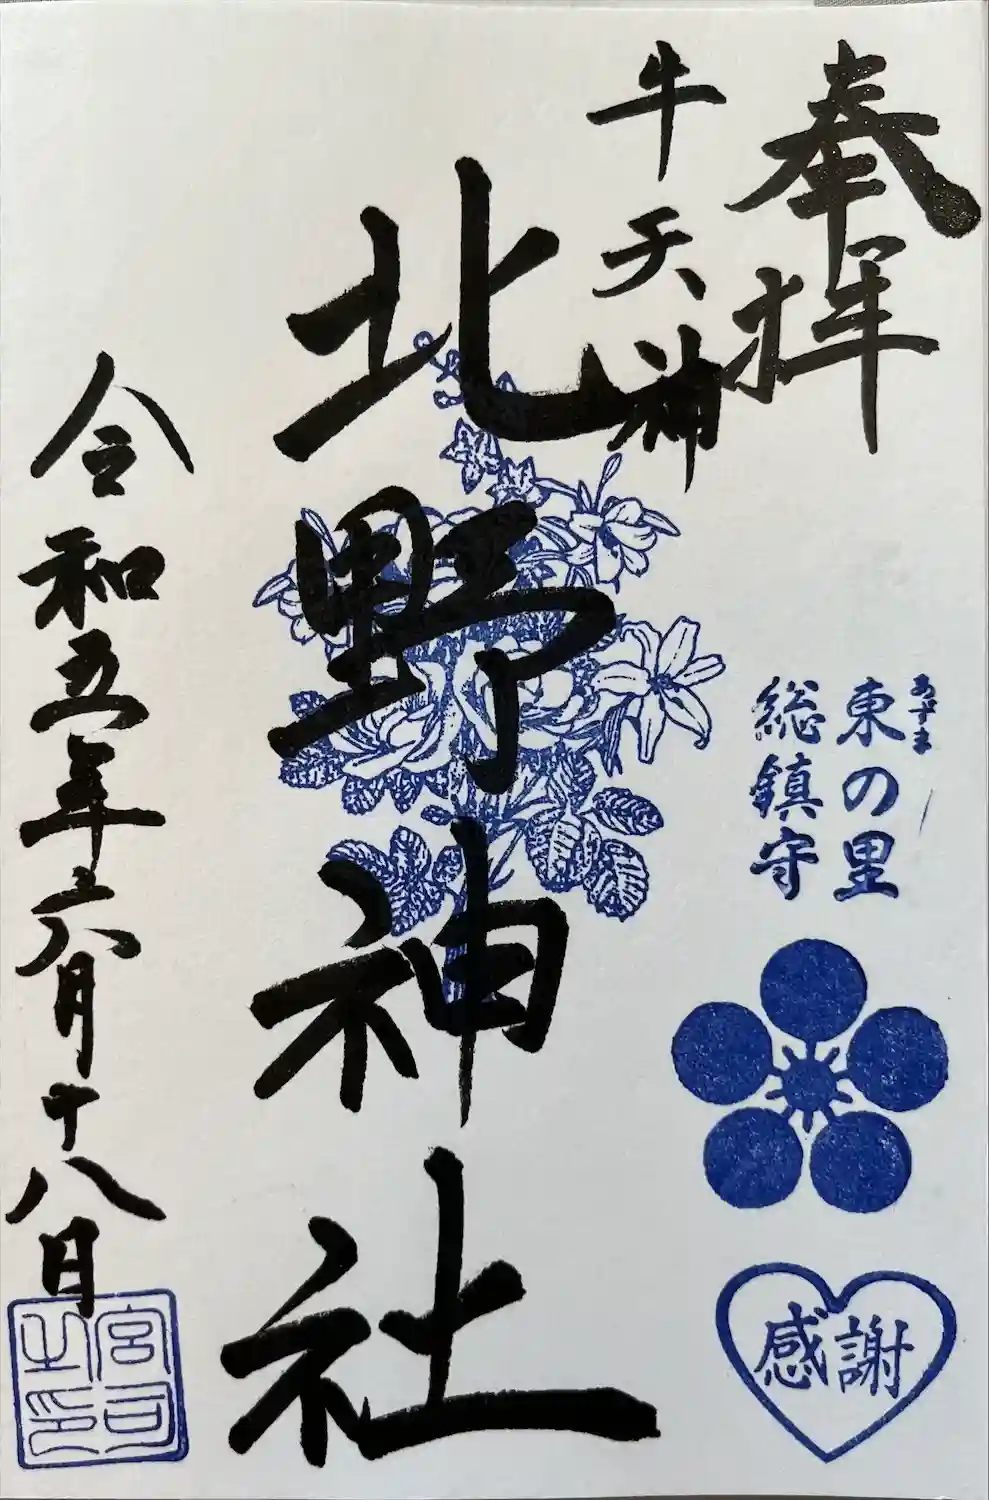 奉拝
牛天神
北野神社
令和五年六月十八日
あずま
東の里
総鎮守
感謝
宮司之印